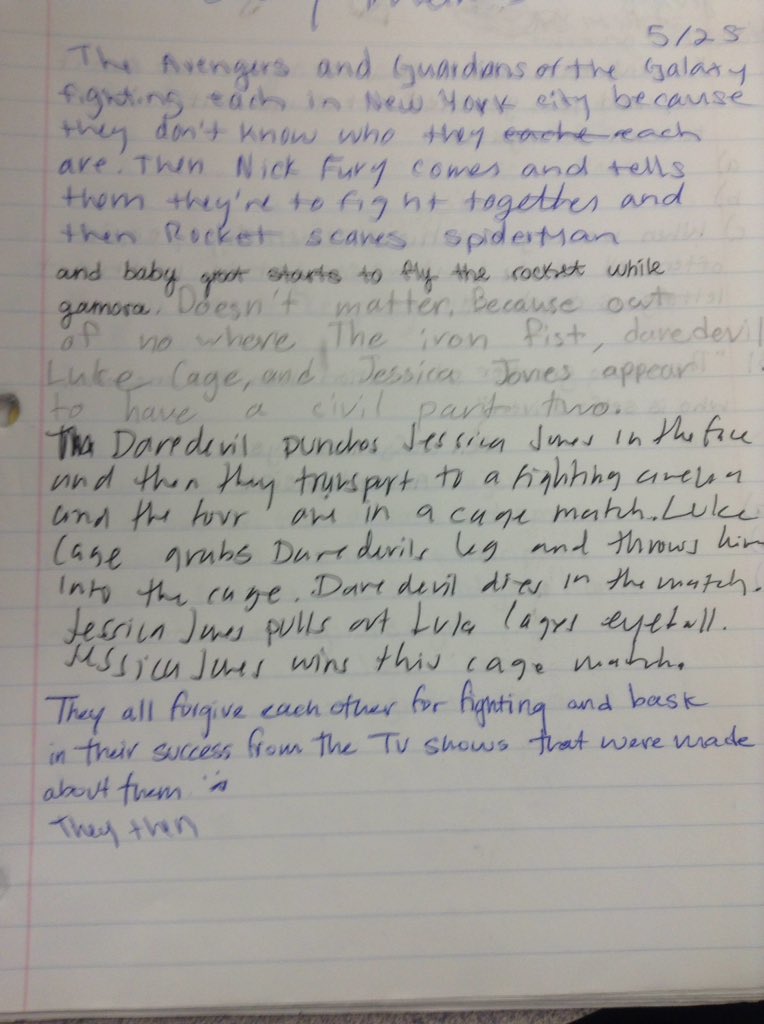 5/25
The Avengers and Guardians of the Galaxy
fighting each in New York city because
they don't know who they eache each
are. Then Nick Fury comes and tells
them they're to fight together and
then Rocket scares spiderman
and baby groot starts to fly the rocket while
gamora. Doesn't matter. Because out
of no where The iron fist, daredevil
Luke Cage, and Jessica Jones appear
to have a civil part two.
The Daredevil punches Jessica Jones in the face
and then they transport to a fighting
and the four are in a cage match. Luke
Cage grabs Daredevils leg and throws him
into the cage. Daredevil dies in the match.
Jessica Jones pulls out Luke Cages eyeball.
Jessica Jones wins this cage match.
They all forgive each other for fighting and bask
in their success from the TV shows that were made
about them
They then